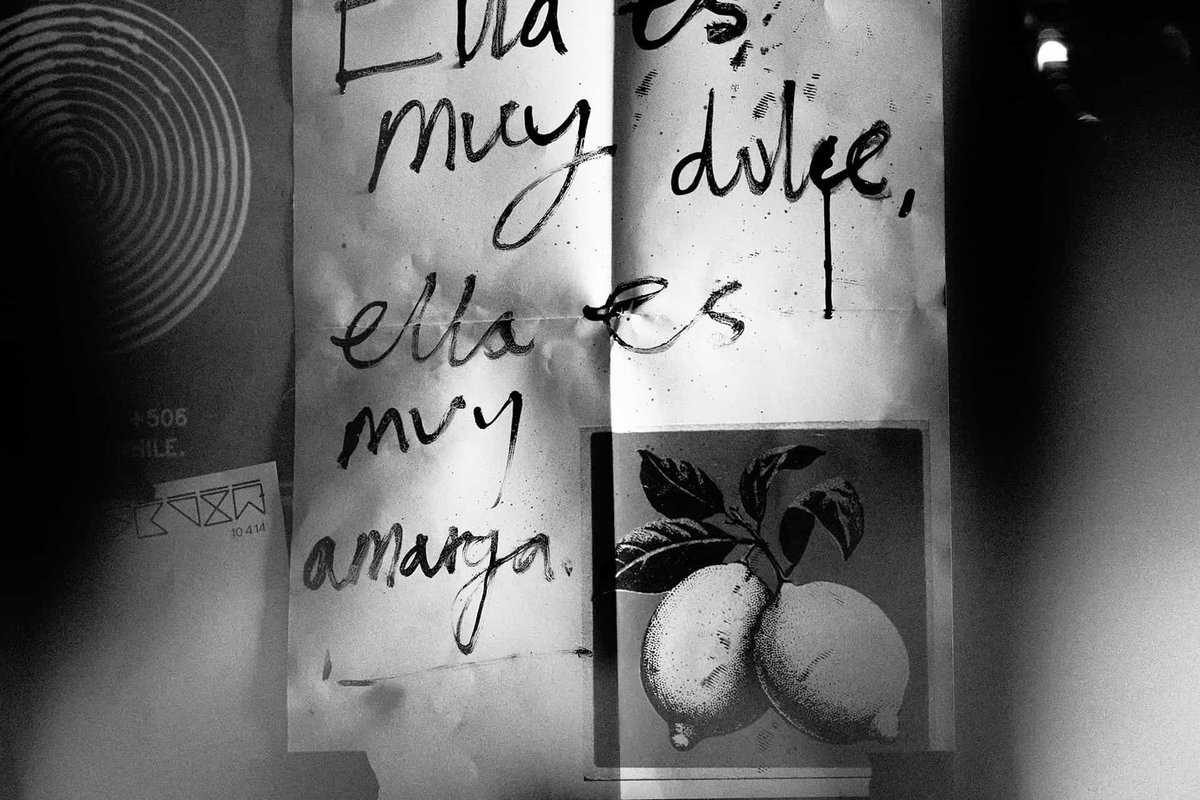 Ella es
muy dolce,
ella es
muy
amarga.
+506
HILE.
10 4 14